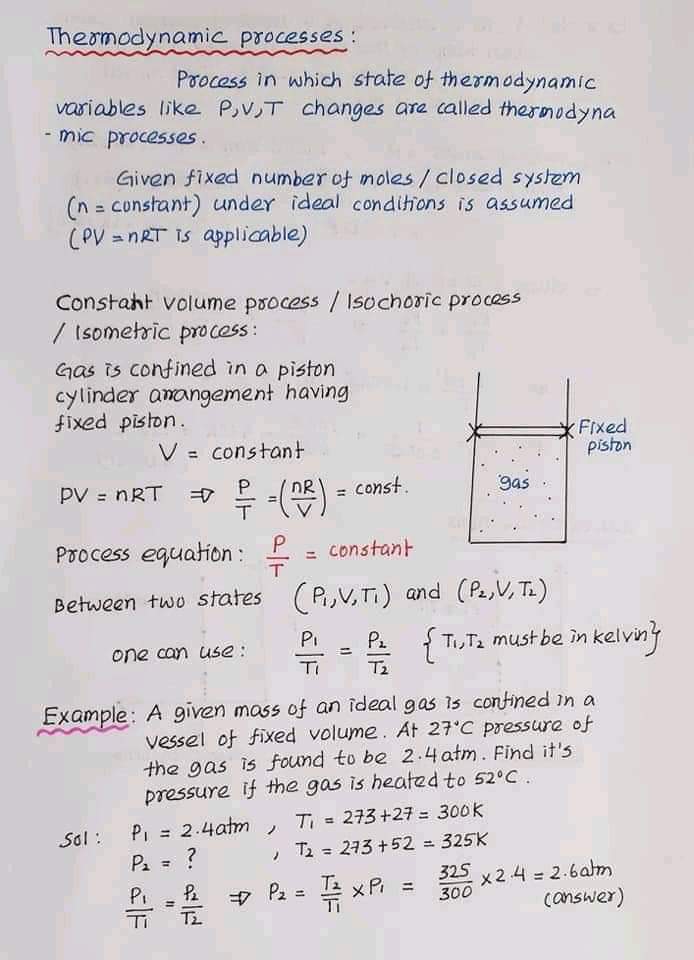 Thermodynamic processes:
Process in which state of thermodynamic
variables like P,V,T changes are called thermodyna
-mic processes.
Given fixed number of moles / closed system
(n = constant) under ideal conditions is assumed
(PV = nRT is applicable)
Constant volume process / Isochoric process
/ Isometric process:
Gas is confined in a piston
cylinder arrangement having
fixed piston.
V = constant
Fixed
piston
gas
PV = nRT ⇒ P/T = (nR/V) = const.
Process equation: P/T = constant
Between two states (P₁,V,T₁) and (P₂,V,T₂)
one can use: P₁/T₁ = P₂/T₂ {T₁,T₂ must be in kelvin}
Example: A given mass of an ideal gas is confined in a
vessel of fixed volume. At 27°C pressure of
the gas is found to be 2.4atm. Find it's
pressure if the gas is heated to 52°C.
Sol: P₁ = 2.4atm , T₁ = 273+27 = 300K
P₂ = ? , T₂ = 273+52 = 325K
P₁/T₁ = P₂/T₂ ⇒ P₂ = T₂/T₁ × P₁ = 325/300 × 2.4 = 2.6atm
(answer)